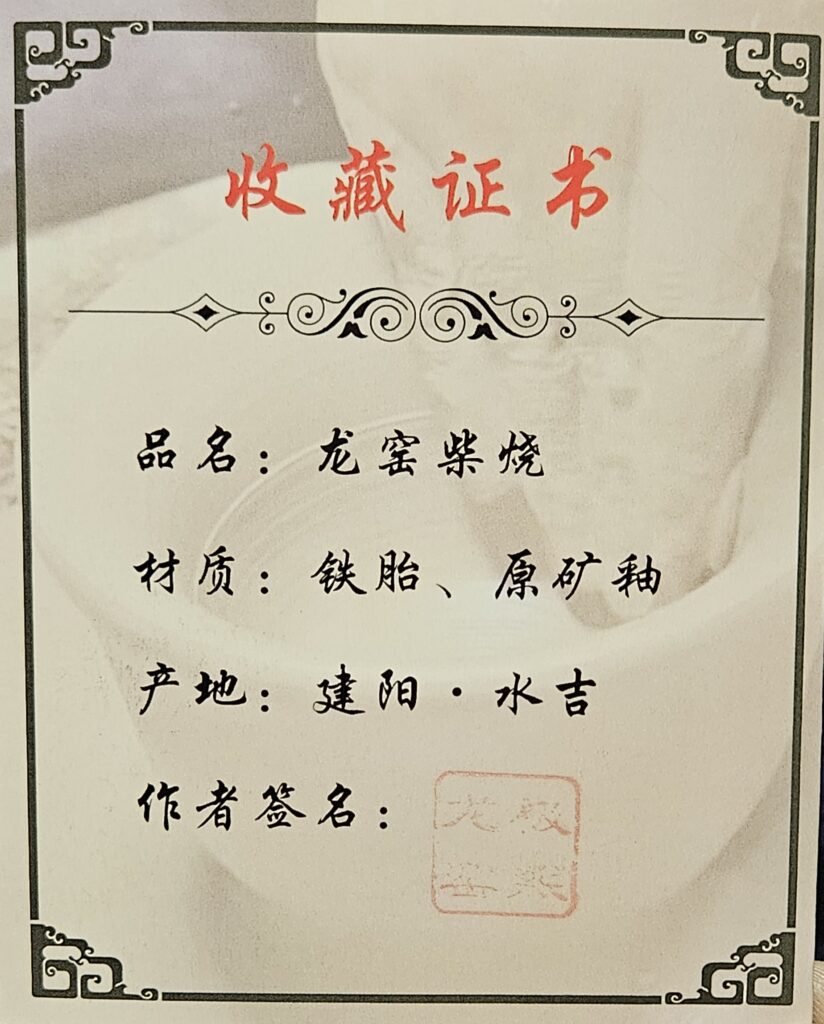 收藏证书
品名：龙窑柴烧
材质：铁胎、原矿釉
产地：建阳·水吉
作者签名：